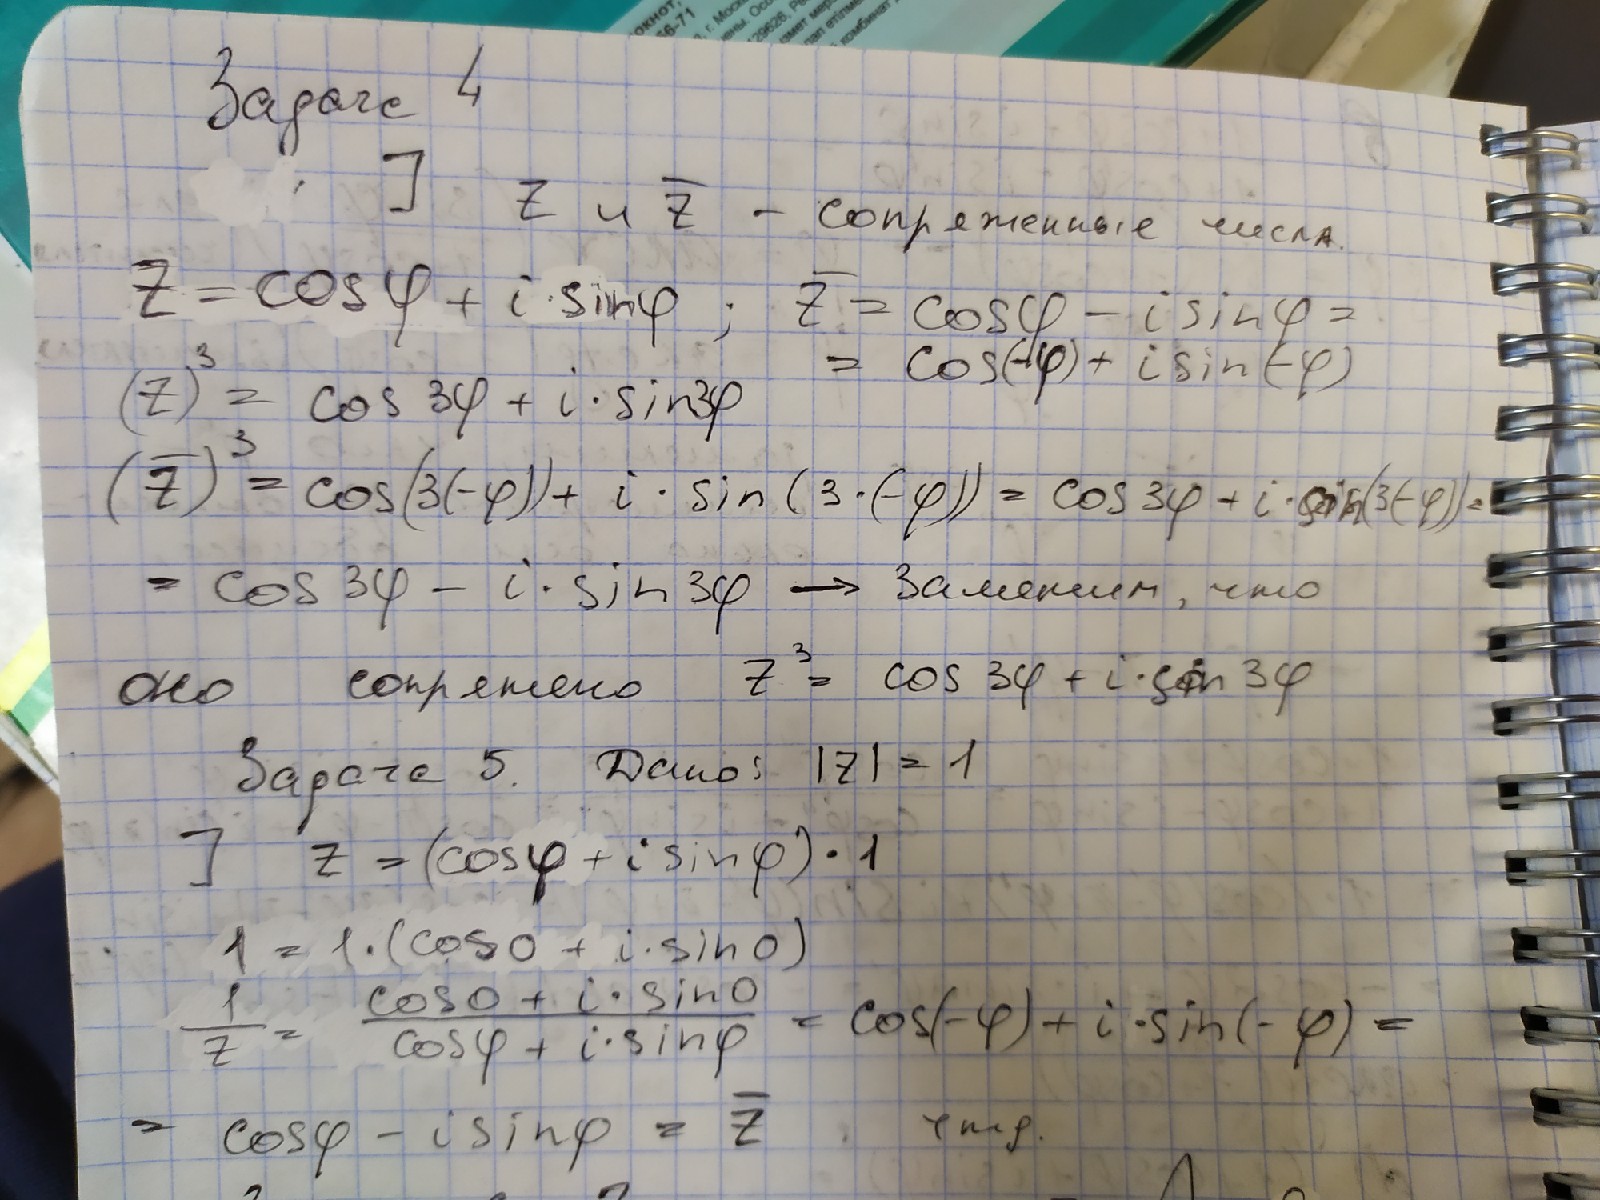 окнот,
66-71
, г. Моск
129626, Р
комбинат
Задача 4
] z и z̅ - сопряженные числа.
z = cosφ + i·sinφ ; z̅ = cosφ - i sinφ =
= cos(-φ) + i sin(-φ)
(z)³ = cos 3φ + i·sin3φ
(z̅)³ = cos(3(-φ)) + i·sin(3·(-φ)) = cos 3φ + i·sin(3(-φ)) =
= cos 3φ - i·sin 3φ → Заметим, что
оно сопряжено z³ = cos 3φ + i·sin 3φ
Задача 5. Дано: |z| = 1
] z = (cosφ + i sinφ)·1
1 = 1·(cos0 + i·sin0)
1/z = (cos0 + i·sin0)/(cosφ + i·sinφ) = cos(-φ) + i·sin(-φ) =
= cosφ - i sinφ = z̅ . чтд.